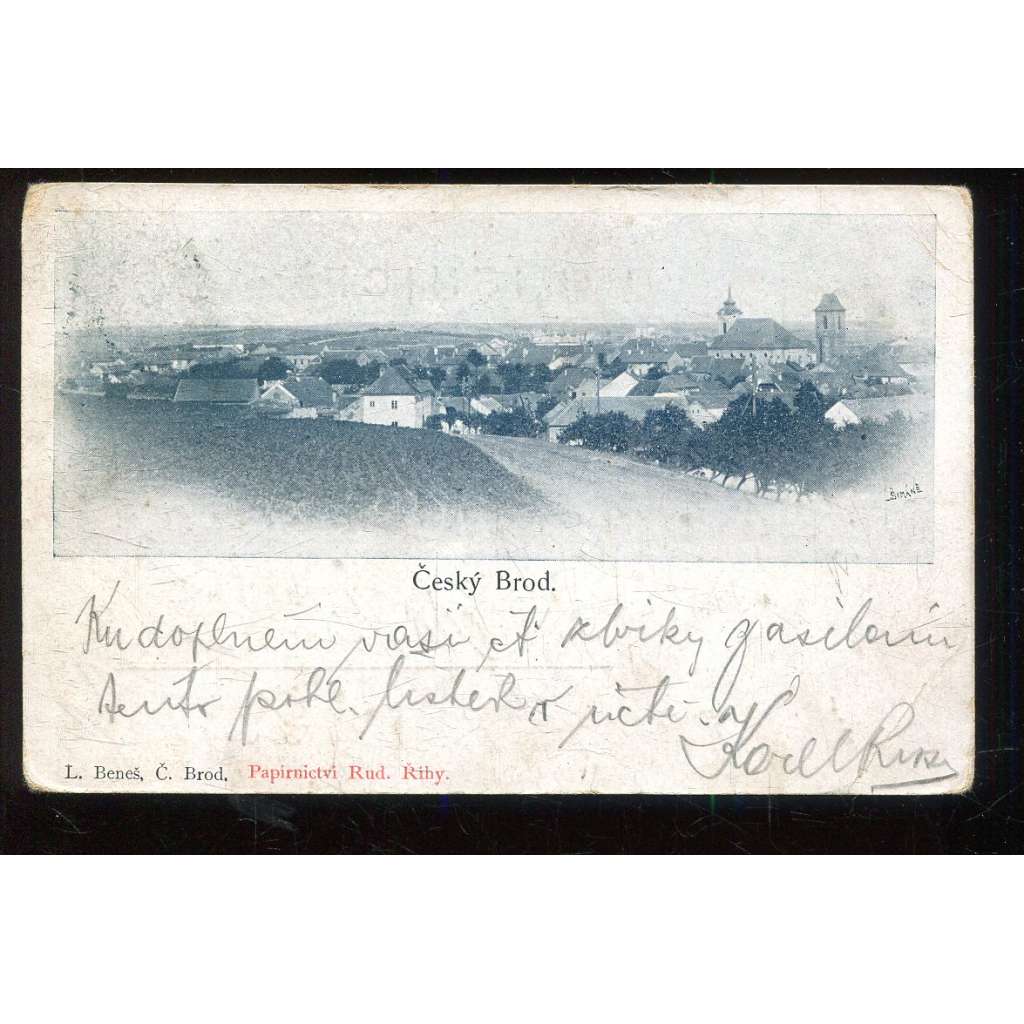 ŠIMÁNĚ
Český Brod.
Ku doplnění vaší ct. zbírky zasílám
tento pohl. lístek v úctě
Karel
L. Beneš, Č. Brod. Papirnictví Rud. Říhy.